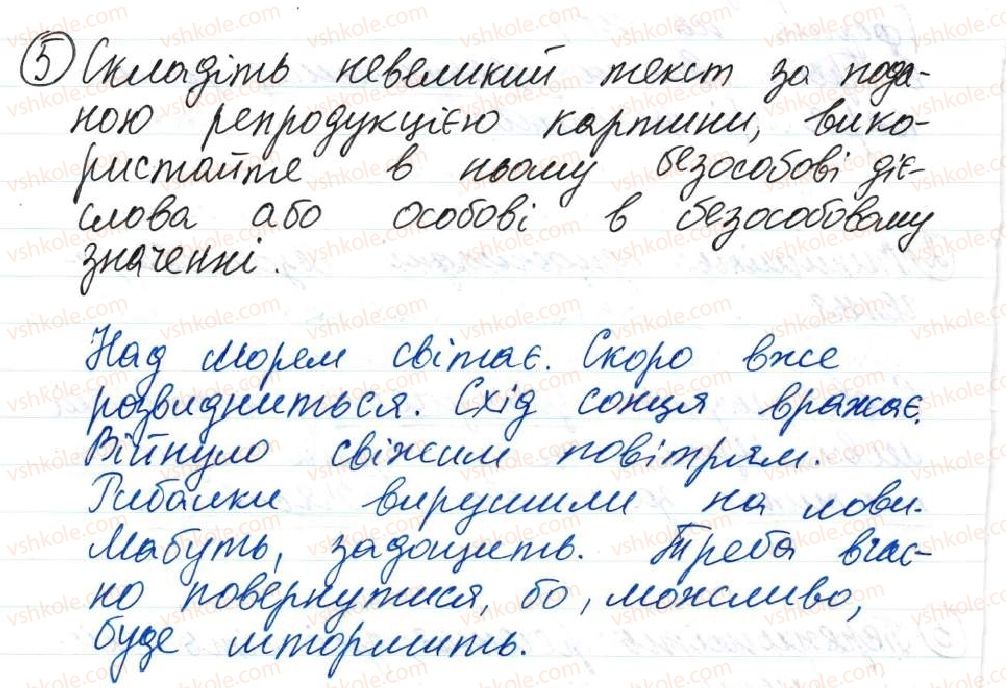 5 Складіть невеликий текст за пода-
ною репродукцією картини, вико-
ристайте в ньому безособові діє-
слова або особові в безособовому
значенні.
Над морем світає. Скоро вже
розвидниться. Схід сонця вражає.
Війнуло свіжим повітрям.
Рибалки вирушили на лови.
Мабуть, задощить. Треба вчас-
но повернутися, бо, можливо,
буде штормить.